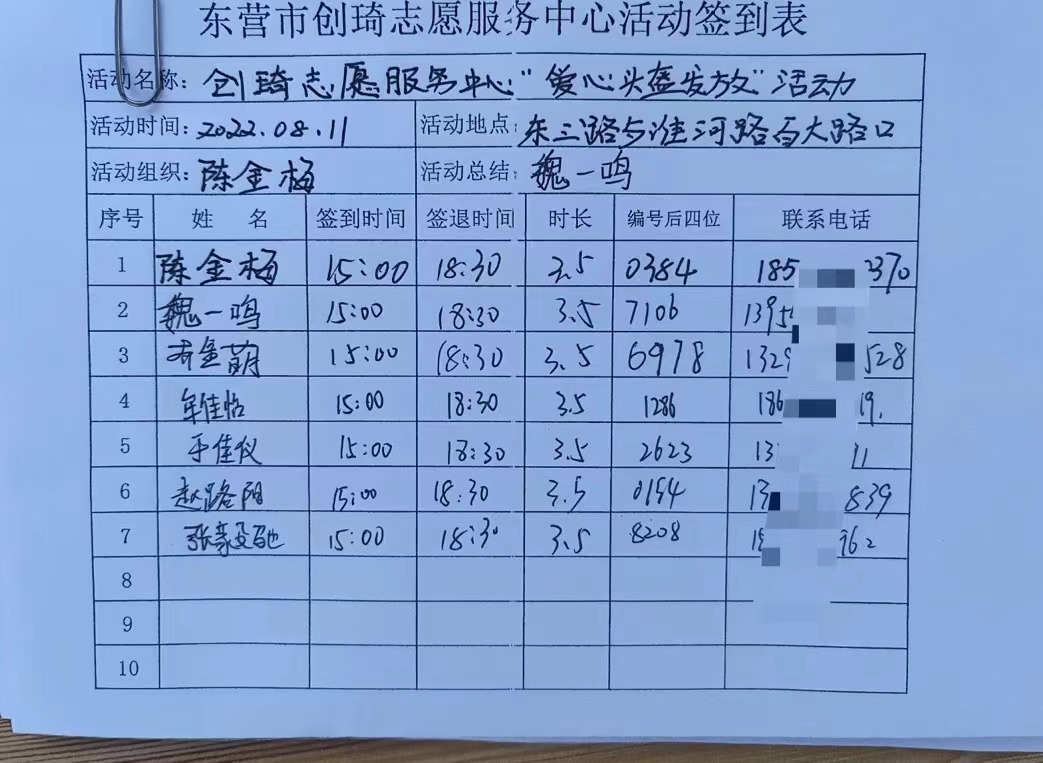 东营市创琦志愿服务中心活动签到表
活动名称: 创琦志愿服务中心"爱心头盔发放"活动
活动时间: 2022.08.11 活动地点: 东三路与淮河路百大路口
活动组织: 陈金梅 活动总结: 魏一鸣
序号 姓 名 签到时间 签退时间 时长 编号后四位 联系电话
1 陈金梅 15:00 18:30 3.5 0384 185 2370
2 魏一鸣 15:00 18:30 3.5 7106 1395
3 15:00 18:30 3.5 6978 1329 528
4 牟佳怡 15:00 18:30 3.5 1286 186 19.
5 于佳仪 15:00 18:30 3.5 2623 13 11
6 赵路阳 15:00 18:30 3.5 0154 13 839
7 15:00 18:30 3.5 8208 18 962
8
9
10